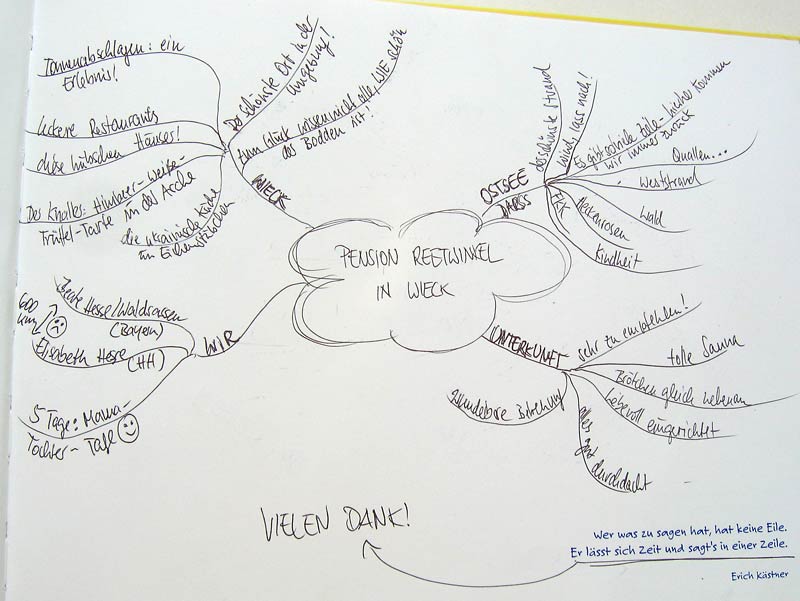 PENSION REETWINKEL
IN WIECK
WIECK
Tonnenabschlagen: ein
Erlebnis!
leckere Restaurants
diese hübschen Häuser!
Der Knaller: Himbeer-Weiße-
Trüffel-Torte in der Arche
die ukrainische Küche
im Eichenstübchen
Der schönste Ort in der
Umgebung!
Zum Glück wissen nicht alle, WIE schön
das Bodden ist!
OSTSEE
DARSS
der schönste Strand
Wind, lass nach!
Es gibt so viele Ziele - hierher kommen
wir immer zurück
Quallen...
Weststrand
Wald
Heckenrosen
Kindheit
FKK
WIR
Beate Hesse/Waldsassen
(Bayern)
600
km
Elisabeth Hesse
(HH)
5 Tage: Mama-
Tochter-
UNTERKUNFT
sehr zu empfehlen!
tolle Sauna
Brötchen gleich nebenan
liebevoll eingerichtet
alles gut
durchdacht
wunderbare Betreuung
VIELEN DANK!
Wer was zu sagen hat, hat keine Eile.
Er lässt sich Zeit und sagt's in einer Zeile.
Erich Kästner